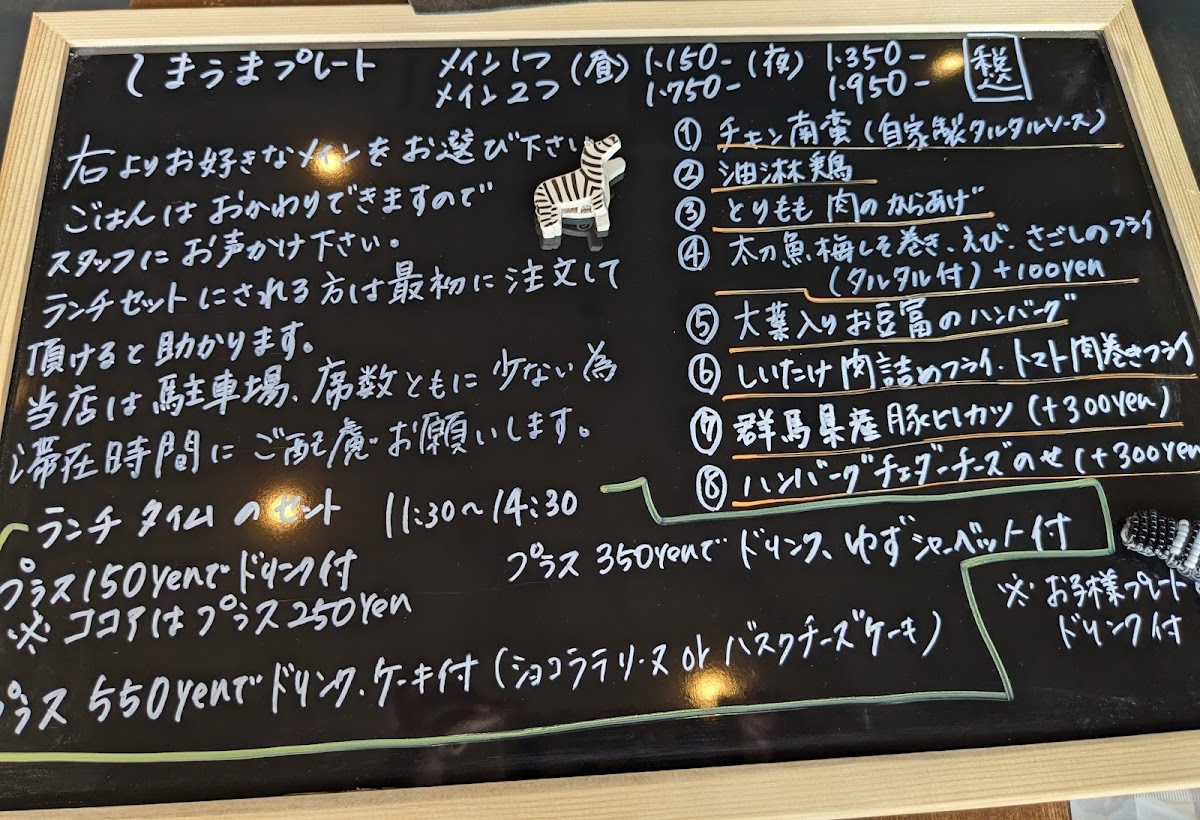 しまうまプレート
メイン1つ (昼) 1.150- (夜) 1.350-
メイン2つ 1.750- 1.950-
税込
右よりお好きなメインをお選び下さい
ごはんはおかわりできますので
スタッフにお声かけ下さい。
ランチセットにされる方は最初に注文して
頂けると助かります。
当店は駐車場、席数ともに少ない為
滞在時間にご配慮お願いします。
① チキン南蛮(自家製タルタルソース)
② 油淋鶏
③ とりもも肉のからあげ
④ 太刀魚梅しそ巻き、えび、さごしのフライ
(タルタル付)+100yen
⑤ 大葉入りお豆富のハンバーグ
⑥ しいたけ肉詰めフライ、トマト肉巻きフライ
⑦ 群馬県産豚ヒレカツ(+300yen)
⑧ ハンバーグチェダーチーズのせ(+300yen
ランチタイムのセット 11:30〜14:30
プラス150yenでドリンク付
※ココアはプラス250yen
プラス350yenでドリンク、ゆずシャーベット付
プラス550yenでドリンク、ケーキ付(ショコラテリーヌorバスクチーズケーキ)
※お子様プレート
ドリンク付